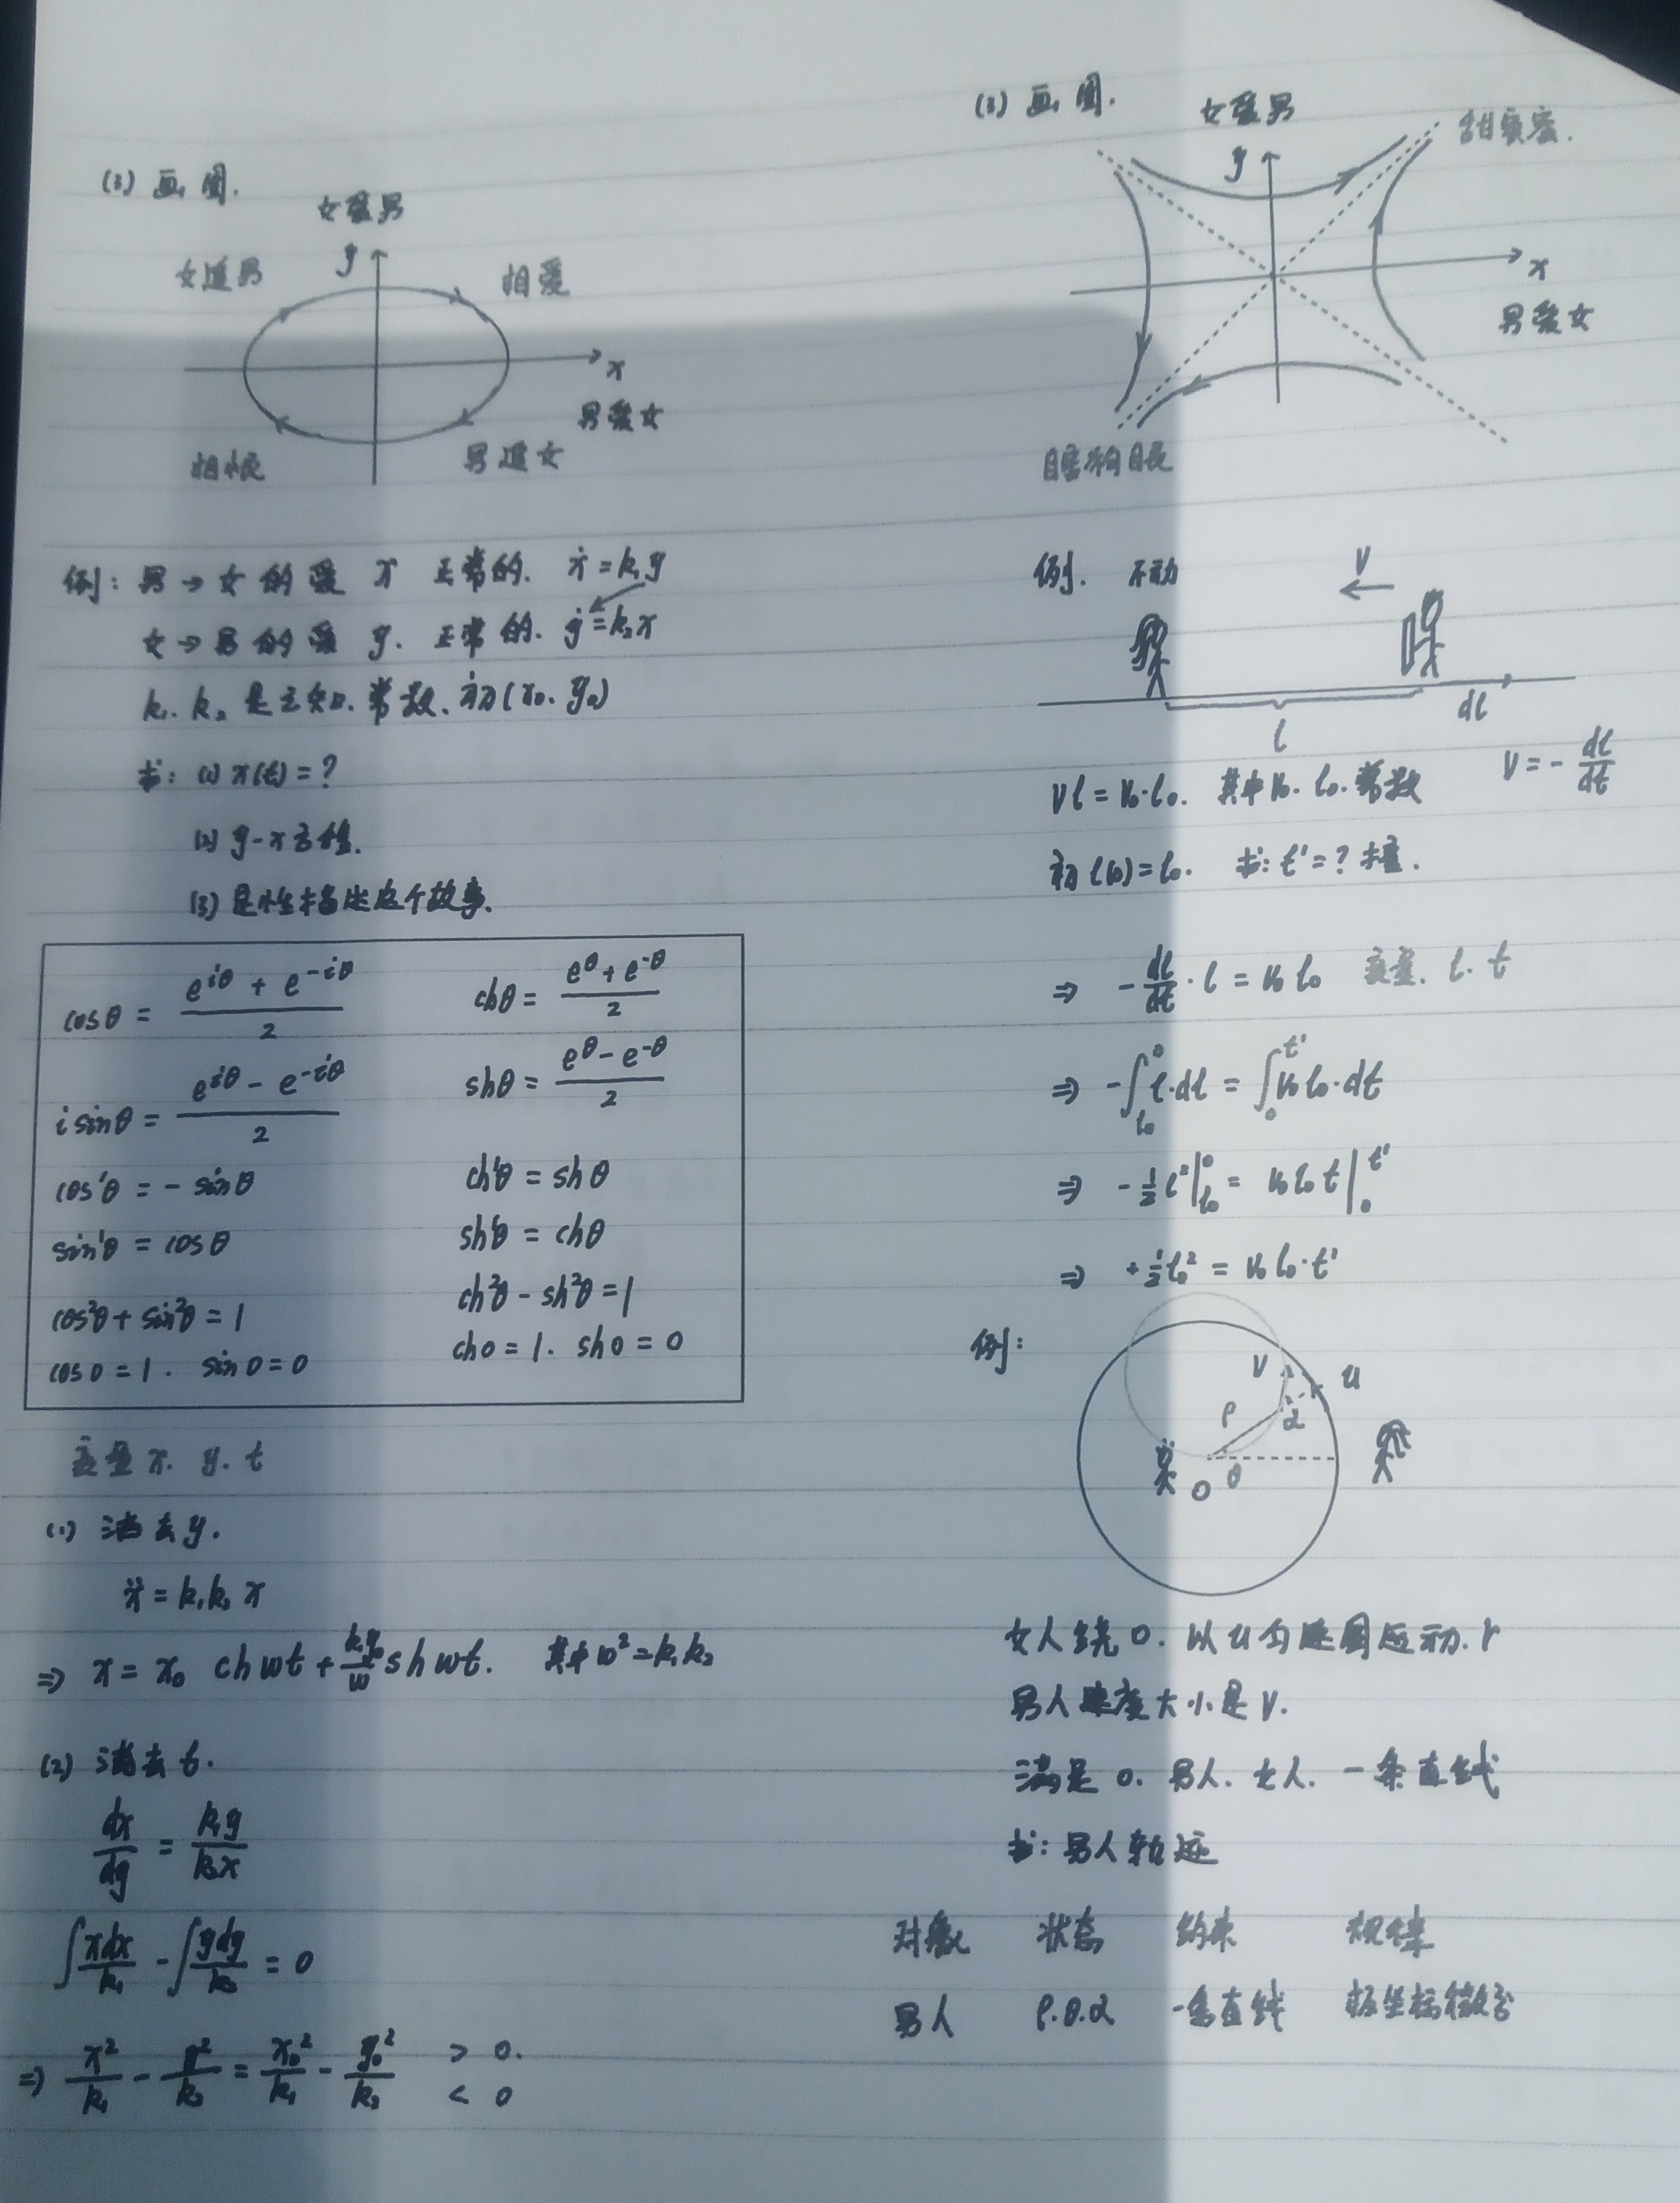 (3) 画图.
女爱男
y
女追男
相爱
x
男爱女
相恨
男追女
例: 男→女的爱 x 正常的. ẋ=k₁y
女→男的爱 y. 正常的. ẏ=k₂x
k₁. k₂ 是已知. 常数. 初(x₀. y₀)
求: (1) x(t)=?
(2) y-x方程.
(3) 定性描述这个故事.
cosθ = (e^{iθ} + e^{-iθ})/2
chθ = (e^θ + e^{-θ})/2
i sinθ = (e^{iθ} - e^{-iθ})/2
shθ = (e^θ - e^{-θ})/2
cos'θ = - sinθ
ch'θ = shθ
sin'θ = cosθ
sh'θ = chθ
cos²θ + sin²θ = 1
ch²θ - sh²θ = 1
cos0 = 1. sin0 = 0
ch0 = 1. sh0 = 0
变量 x. y. t
(1) 消去y.
ẍ = k₁k₂x
⇒ x = x₀ chωt + (k₁y₀/ω) shωt. 其中ω²=k₁k₂
(2) 消去t.
dx/dy = k₁y/k₂x
∫xdx/k₁ - ∫ydy/k₂ = 0
⇒ x²/k₁ - y²/k₂ = x₀²/k₁ - y₀²/k₂ > 0.
< 0
(3) 画图.
女爱男
y
甜蜜蜜.
x
男爱女
例. 不动
V
l
dl
Vl = V₀·l₀. 其中V₀. l₀. 常数
V = - dl/dt
初 l(0)=l₀. 求: t'=? 撞.
⇒ -dl/dt · l = V₀l₀ 变量. l. t
⇒ -∫_{l₀}^{0} l·dl = ∫_{0}^{t'} V₀l₀·dt
⇒ -½l²|_{l₀}^{0} = V₀l₀t|_{0}^{t'}
⇒ +½l₀² = V₀l₀·t'
例:
V
u
ρ
α
O
θ
女人绕O. 以u匀速圆运动. r
男人速度大小是V.
满足O. 男人. 女人. 一条直线
求: 男人轨迹
对象 状态 约束 规律
男人 ρ.θ.α 一条直线 极坐标微分